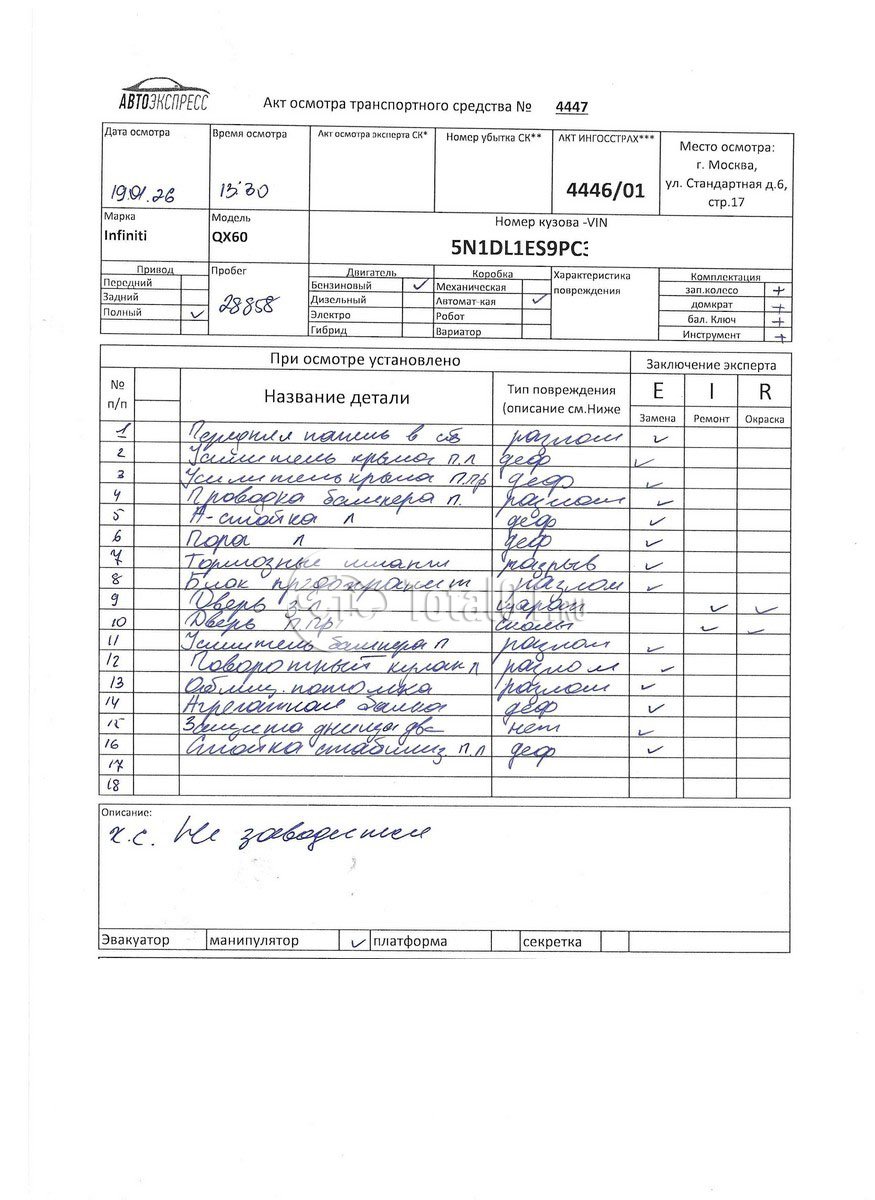 АВТОЭКСПРЕСС
Акт осмотра транспортного средства № 4447
Дата осмотра Время осмотра Акт осмотра эксперта СК* Номер убытка СК** АКТ ИНГОССТРАХ*** Место осмотра:
г. Москва,
19.01.26 13:30 4446/01 ул. Стандартная д.6,
стр.17
Марка Модель Номер кузова -VIN
Infiniti QX60 5N1DL1ES9PC3
Привод Пробег Двигатель Коробка Характеристика Комплектация
Передний Бензиновый ✓ Механическая повреждения зап.колесо +
Задний 28858 Дизельный Автомат-кая ✓ домкрат +
Полный ✓ Электро Робот бал. Ключ +
Гибрид Вариатор Инструмент +
При осмотре установлено Заключение эксперта
№ п/п Название детали Тип повреждения (описание см.Ниже E I R
Замена Ремонт Окраска
1 Передняя панель в сб разлом ✓
2 Усилитель крыла п.л деф ✓
3 Усилитель крыла п.пр деф ✓
4 Проводка бампера п. разлом ✓
5 А-стойка л деф ✓
6 Пора л деф ✓
7 Тормозные шланги разрыв ✓
8 Блок предохранит разлом ✓
9 Дверь з л царап ✓ ✓
10 Дверь п пр сколы ✓ ✓
11 Усилитель бампера п разлом ✓
12 Поворотный кулак л разлом ✓
13 Облиц. потолка разлом ✓
14 Агрегатная балка деф ✓
15 Защита днища дв нет ✓
16 Стойка стабилиз п.л деф ✓
17
18
Total01.ru
Описание:
х.с. Не заводится
Эвакуатор манипулятор ✓ платформа секретка